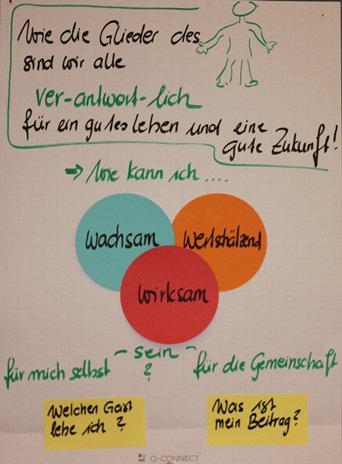 Wie die Glieder des
sind wir alle
ver-antwort-lich
für ein gutes Leben und eine
gute Zukunft!
→ Wie kann ich ....
Wachsam
Wertschätzend
Wirksam
für mich selbst - sein - für die Gemeinschaft
?
Welchen Geist
lebe ich?
Was ist
mein Beitrag?
Q-CONNECT